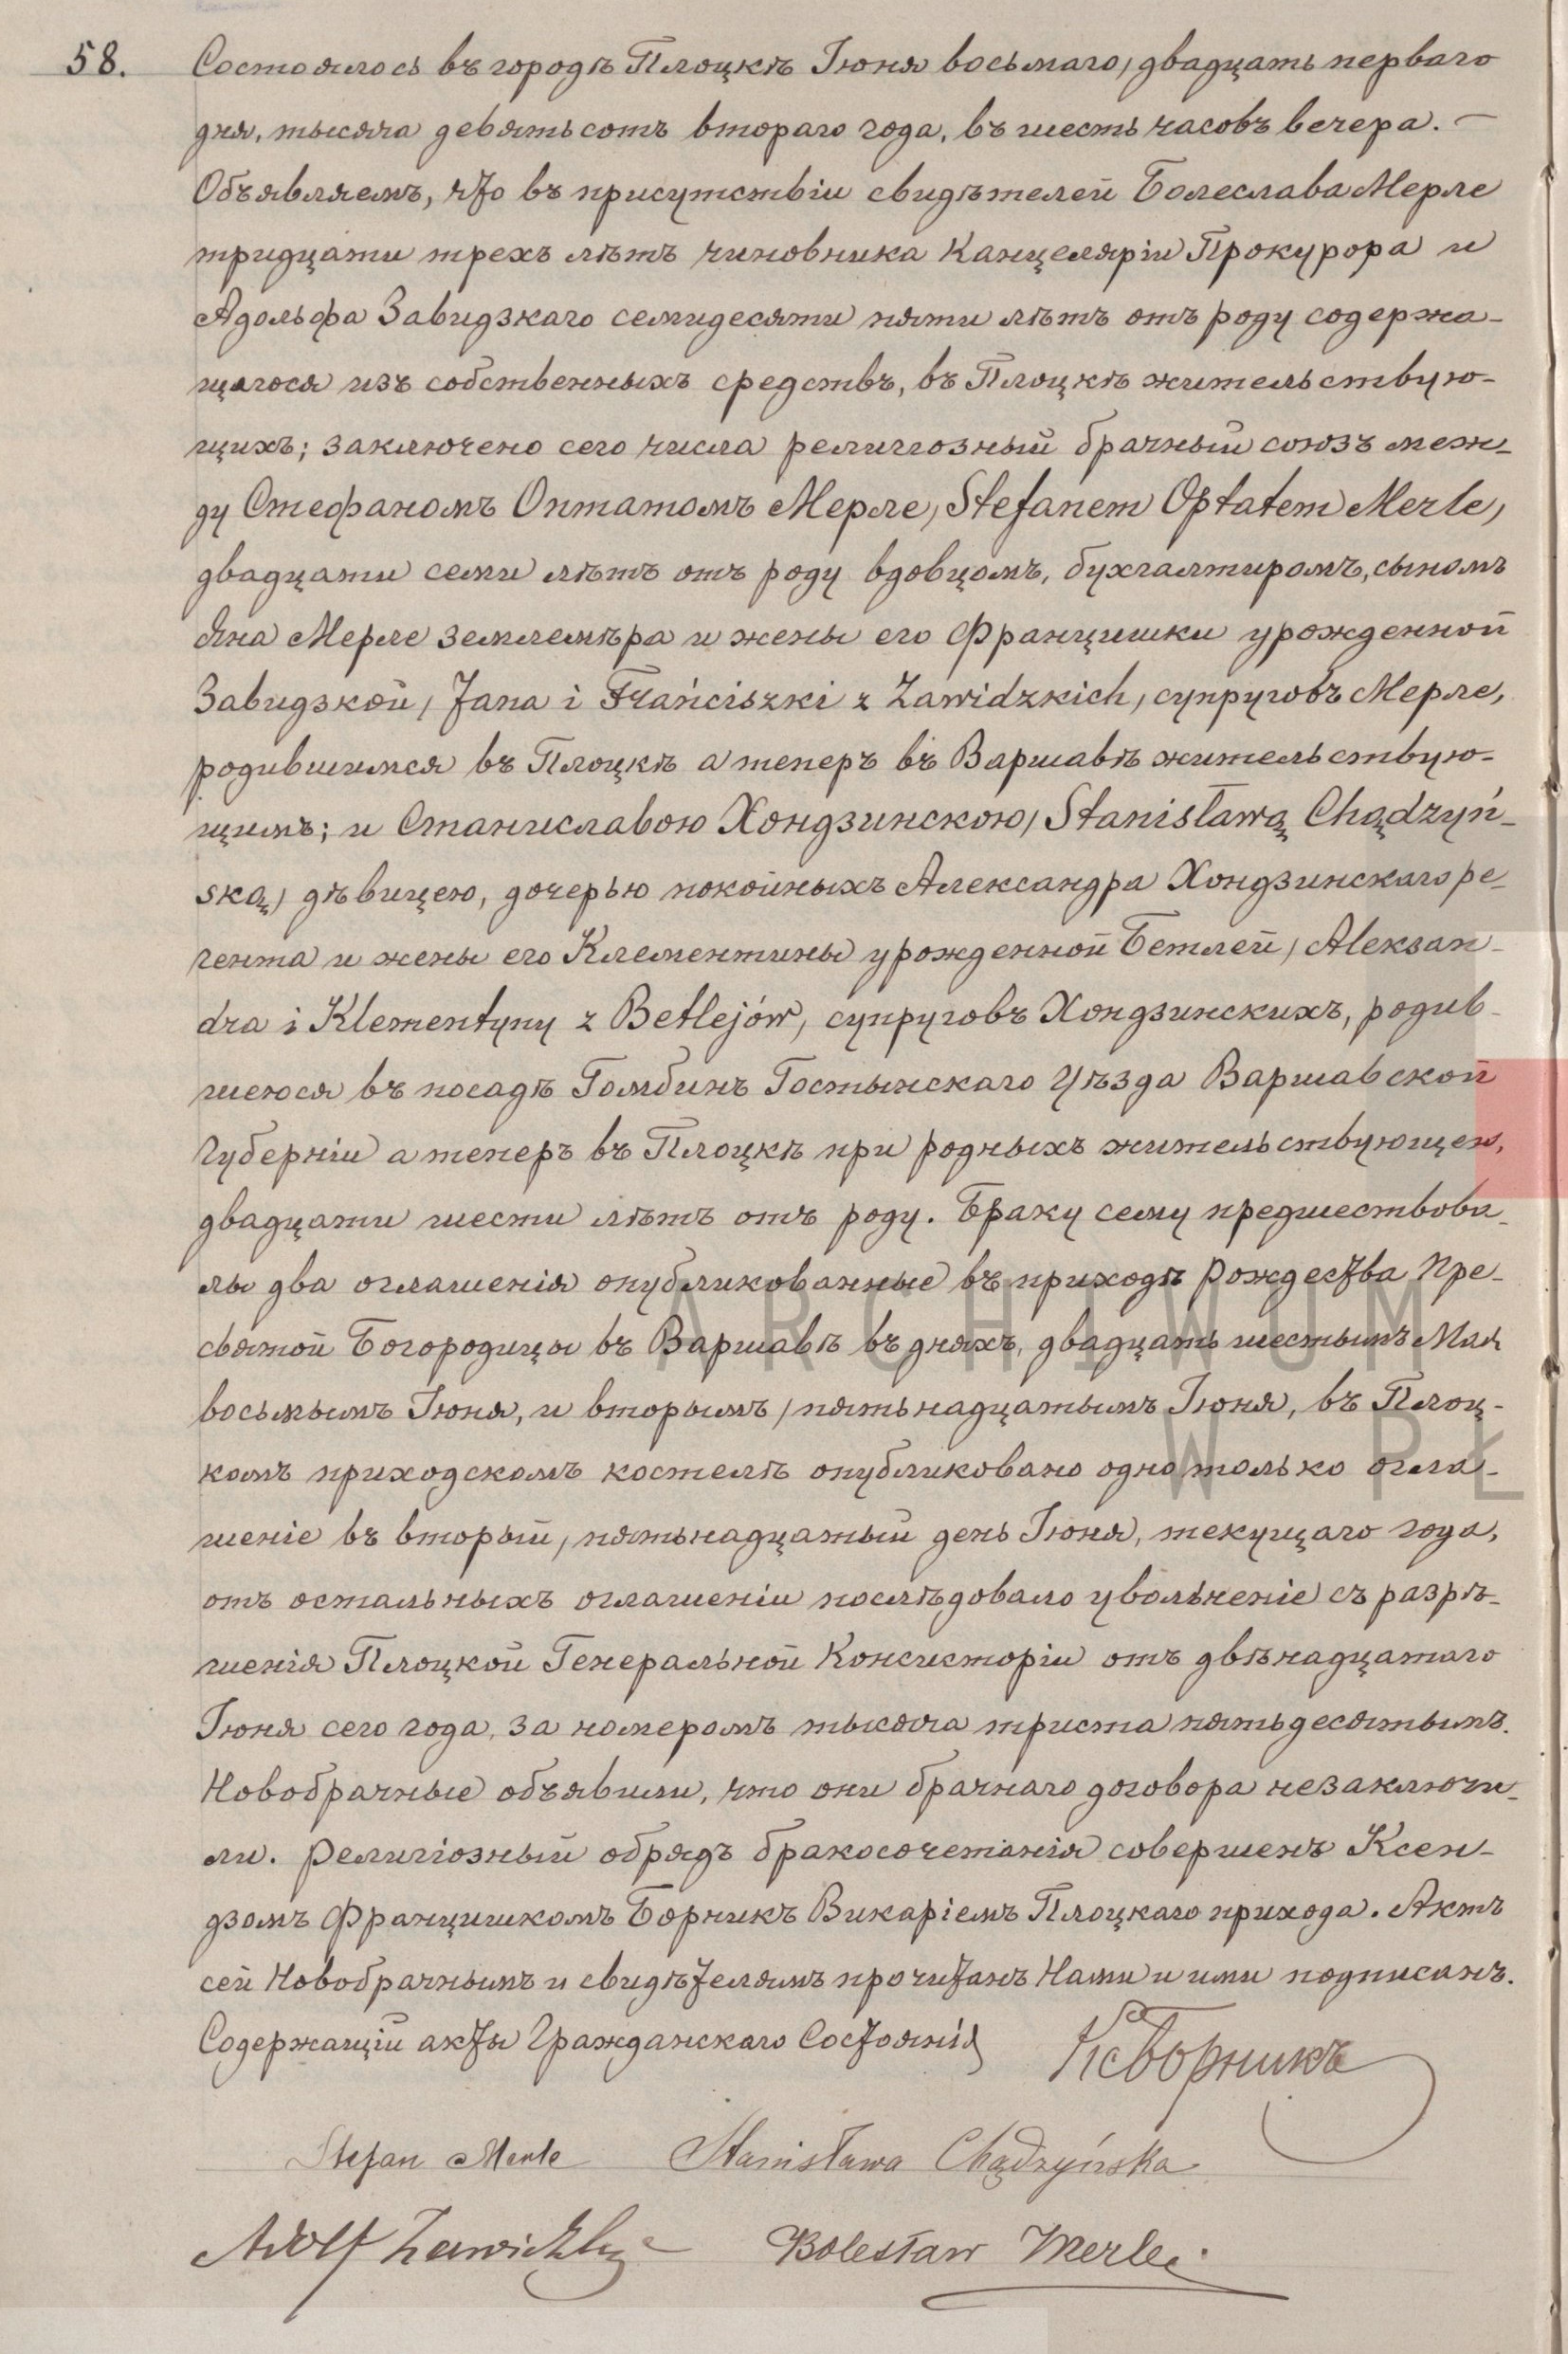 58. Состоялось въ городѣ Плоцкѣ Іюня восьмаго/двадцать перваго
дня, тысяча девятьсотъ втораго года, въ шесть часовъ вечера. —
Объявляемъ, что въ присутствіи свидѣтелей Болеслава Мерле
тридцати трехъ лѣтъ чиновника Канцеляріи Прокурора и
Адольфа Завидзкаго семидесяти пяти лѣтъ отъ роду содержа-
щагося изъ собственныхъ средствъ, въ Плоцкѣ жительствую-
щихъ; заключено сего числа религіозный брачный союзъ меж-
ду Стефаномъ Оптатомъ Мерле, /Stefanem Optatem Merle/
двадцати семи лѣтъ отъ роду вдовцомъ, бухгалтиромъ, сыномъ
Яна Мерле землемѣра и жены его Францишки урожденной
Завидзкой, /Jana i Frańciszki z Zawidzkich/, супруговъ Мерле,
родившимся въ Плоцкѣ а теперъ въ Варшавѣ жительствую-
щимъ; и Станиславою Хондзинскою /Stanisławą Chądzyń-
ską/ дѣвицею, дочерью покойныхъ Александра Хондзинскаго ре-
гента и жены его Клементины урожденной Бетлей /Aleksan-
dra i Klementyny z Betlejów/, супруговъ Хондзинскихъ, родив-
шеюся въ посадѣ Гомбинъ Гостынскаго Уѣзда Варшавской
Губерніи а теперъ въ Плоцкѣ при родныхъ жительствующею,
двадцати шести лѣтъ отъ роду. Браку сему предшествова-
лы два оглашенія опубликованные въ приходѣ Рождества Пре-
святой Богородицы въ Варшавѣ въ дняхъ, двадцать шестымъ Мая
восьмымъ Іюня, и вторымъ/пятьнадцатымъ Іюня, въ Плоц-
комъ приходскомъ костелѣ опубликовано одно только огла-
шеніе въ вторый/пятьнадцатый день Іюня, текущаго года,
отъ остальныхъ оглашеніи послѣдовало увольненіе съ разрѣ-
шенія Плоцкой Генеральной Консисторіи отъ двѣнадцатаго
Іюня сего года, за номеромъ тысяча триста пятьдесятымъ.
Новобрачные объявили, что они брачнаго договора незаключи-
ли. Религіозный обрядъ бракосочетанія совершенъ Ксен-
дзомъ Францишкомъ Борникъ Викаріемъ Плоцкаго прихода. Актъ
сей Новобрачнымъ и свидѣтелямъ прочитанъ Нами и ими подписанъ.
Содержащій акты Гражданскаго Состоянія Кс Борникъ
Stefan Merle Stanisława Chądzyńska
Adolf Zawidzky Bolesław Merle
ARCHIWUM
W PŁ